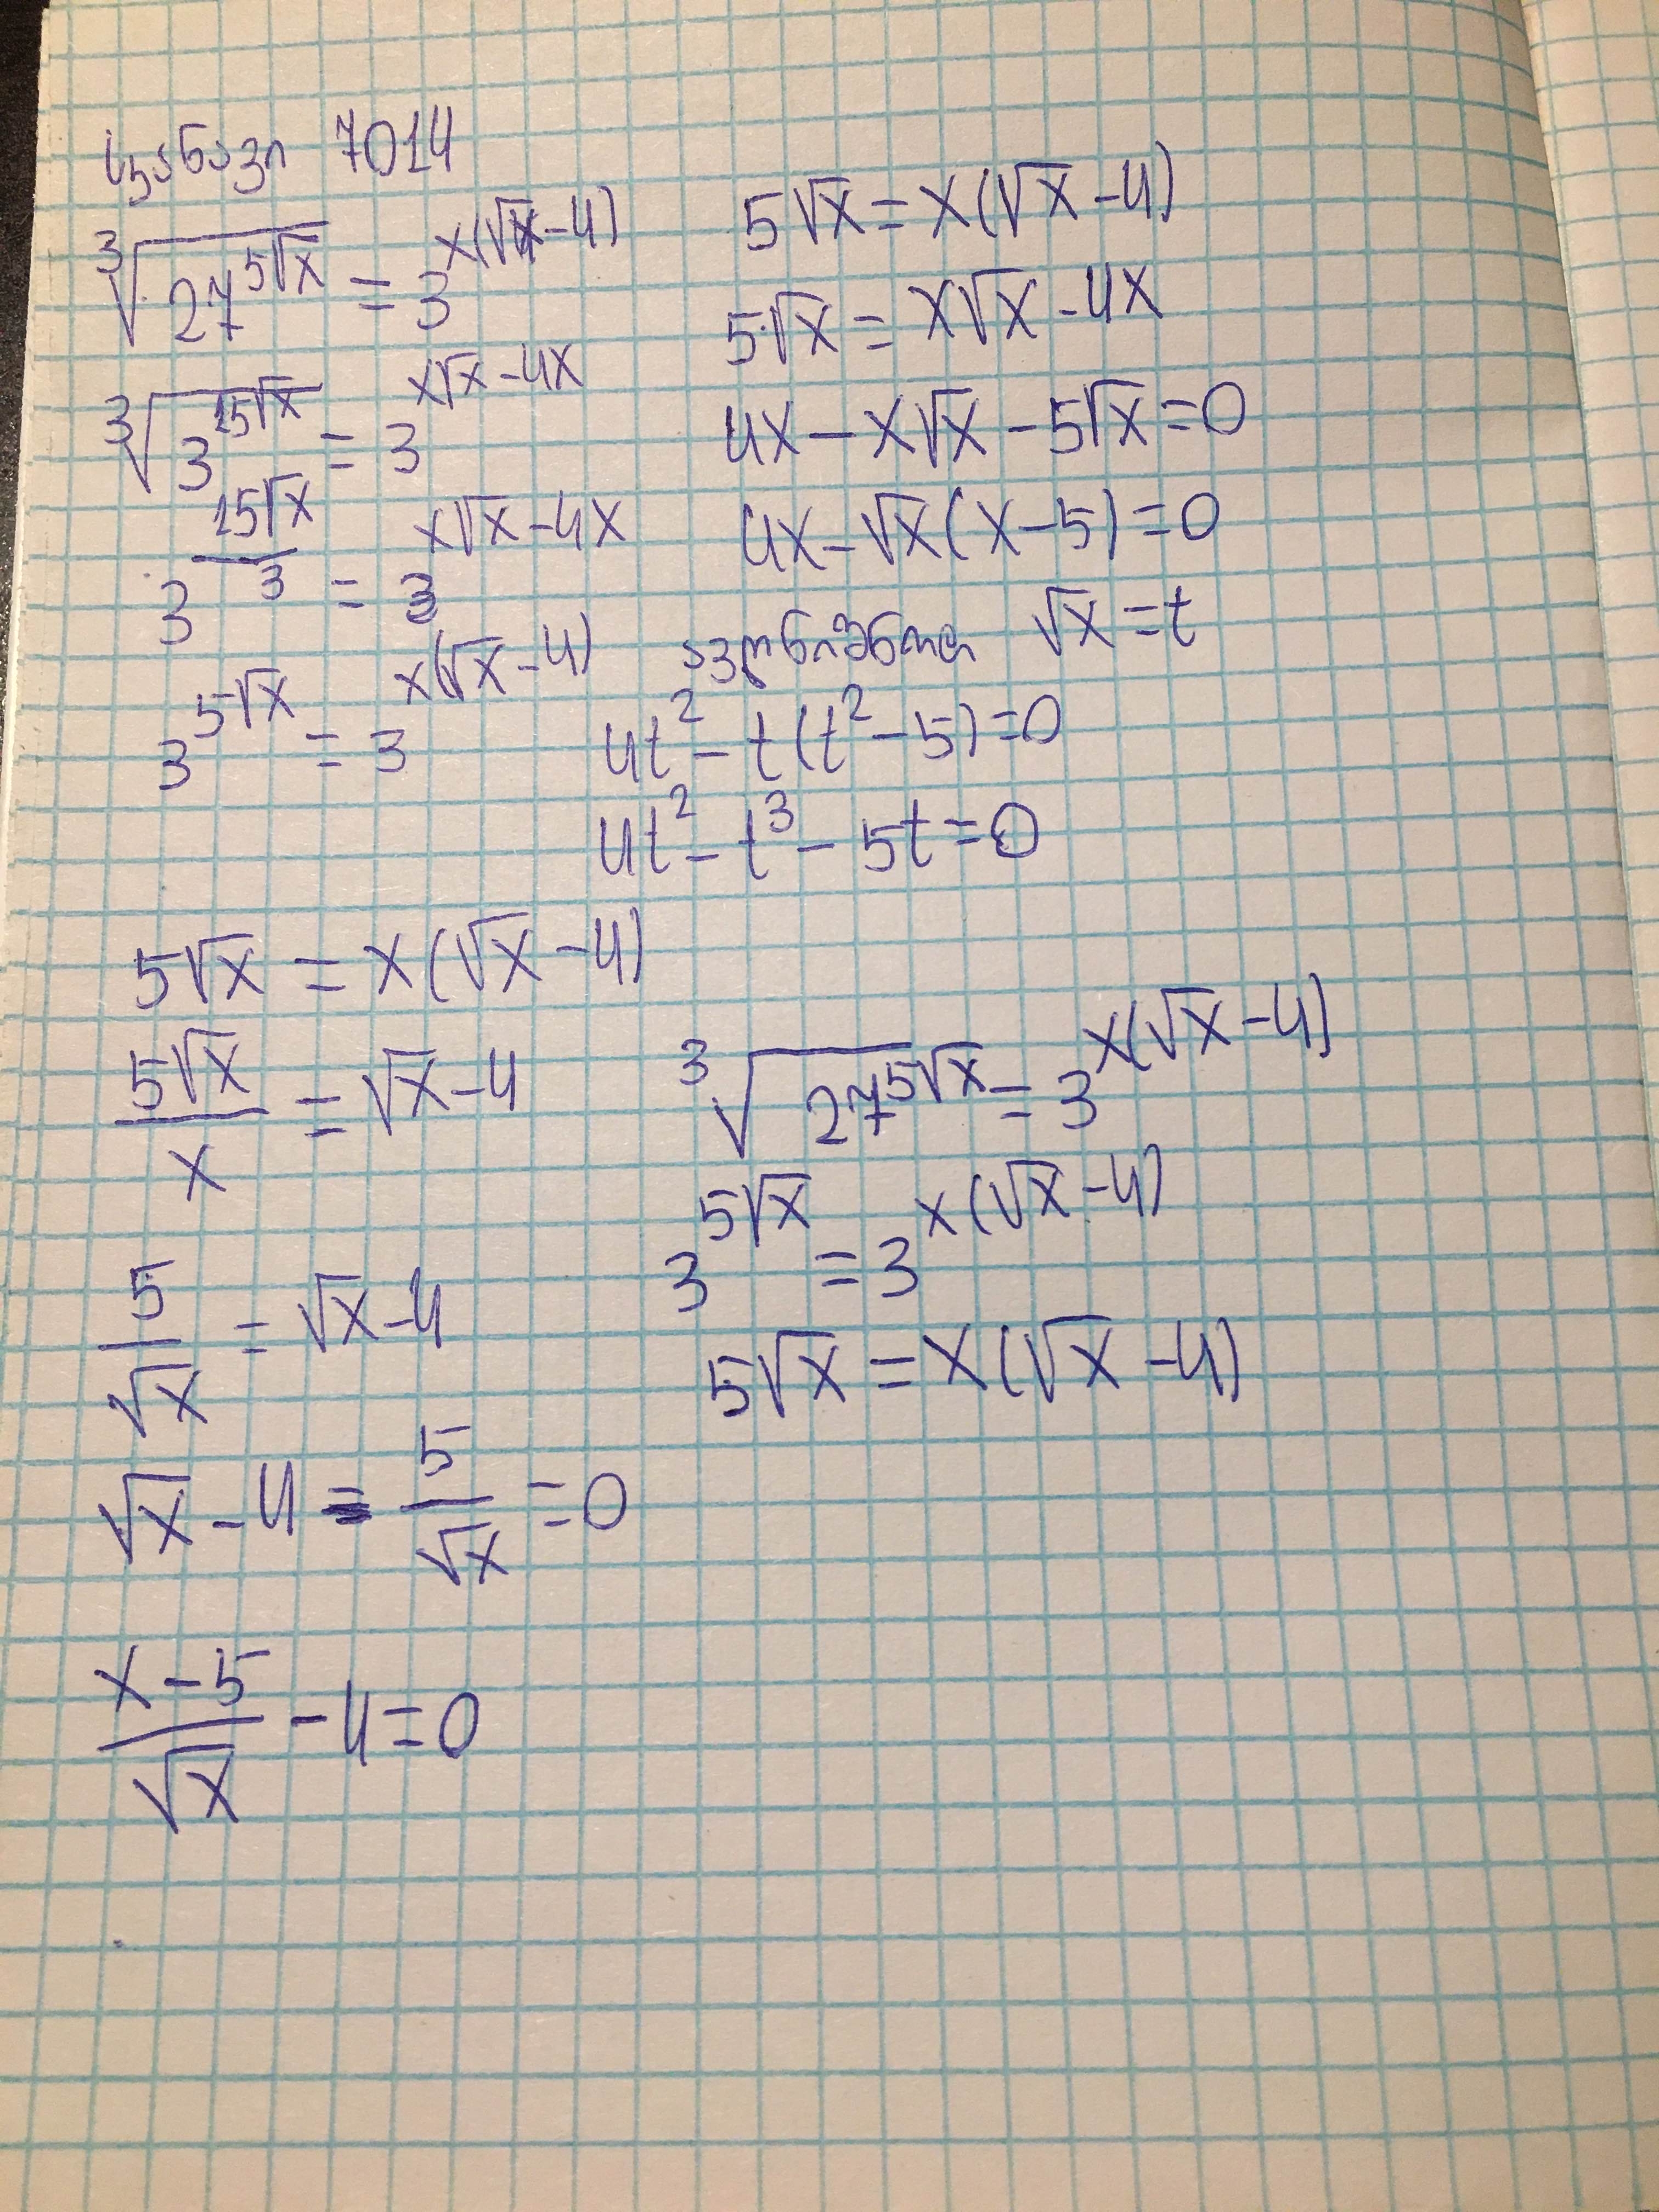 7014
∛(27^(5√x)) = 3^(x(√x-4))
∛(3^(15√x)) = 3^(x√x-4x)
3^(15√x/3) = 3^(x√x-4x)
3^(5√x) = 3^(x(√x-4))
5√x = x(√x-4)
5√x = x√x-4x
4x-x√x-5√x=0
4x-√x(x-5)=0
აღვნიშნოთ √x=t
4t²-t(t²-5)=0
4t²-t³-5t=0
5√x = x(√x-4)
5√x/x = √x-4
5/√x = √x-4
√x-4-5/√x=0
(x-5)/√x-4=0
∛(27^(5√x)) = 3^(x(√x-4))
3^(5√x) = 3^(x(√x-4))
5√x = x(√x-4)